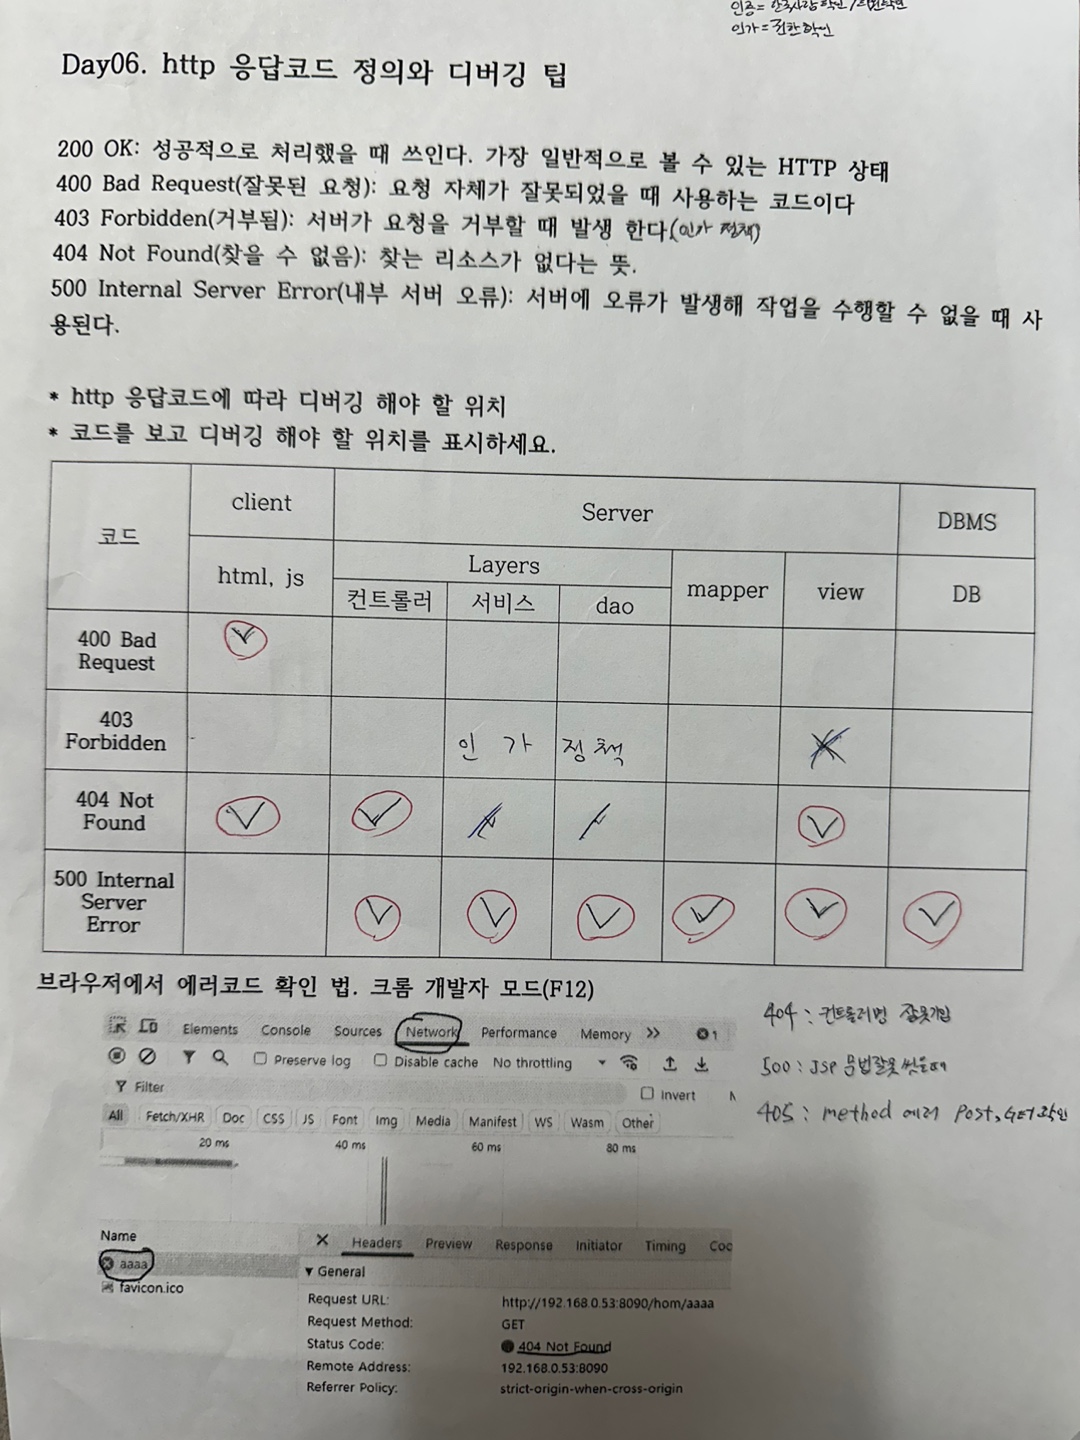 인증=
인가=권한확인
Day06. http 응답코드 정의와 디버깅 팁
200 OK: 성공적으로 처리했을 때 쓰인다. 가장 일반적으로 볼 수 있는 HTTP 상태
400 Bad Request(잘못된 요청): 요청 자체가 잘못되었을 때 사용하는 코드이다
403 Forbidden(거부됨): 서버가 요청을 거부할 때 발생 한다(인가 정책)
404 Not Found(찾을 수 없음): 찾는 리소스가 없다는 뜻.
500 Internal Server Error(내부 서버 오류): 서버에 오류가 발생해 작업을 수행할 수 없을 때 사
용된다.
* http 응답코드에 따라 디버깅 해야 할 위치
* 코드를 보고 디버깅 해야 할 위치를 표시하세요.
코드 client Server DBMS
html, js Layers mapper view DB
컨트롤러 서비스 dao
400 Bad
Request
403
Forbidden 인가 정책
404 Not
Found
500 Internal
Server
Error
브라우저에서 에러코드 확인 법. 크롬 개발자 모드(F12)
404 : 컨트롤러명 잘못기입
500 : JSP 문법잘못 썼을때
405 : method 에러 Post, GET 확인
Elements Console Sources Network Performance Memory >> 1
Preserve log Disable cache No throttling
Filter Invert
All Fetch/XHR Doc CSS JS Font Img Media Manifest WS Wasm Other
20 ms 40 ms 60 ms 80 ms
Name
aaaa
favicon.ico
Headers Preview Response Initiator Timing Coo
General
Request URL: http://192.168.0.53:8090/hom/aaaa
Request Method: GET
Status Code: 404 Not Found
Remote Address: 192.168.0.53:8090
Referrer Policy: strict-origin-when-cross-origin